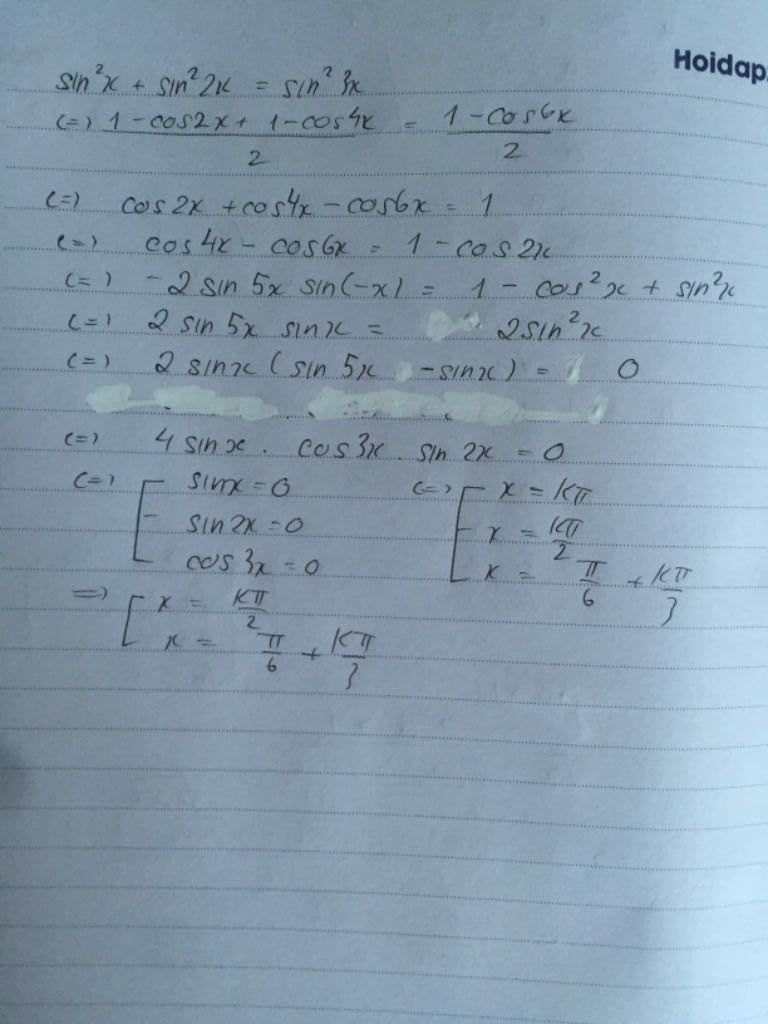 Hoidap
sin²x + sin²2x = sin²3x
(=) (1 - cos2x + 1 - cos4x)/2 = (1 - cos6x)/2
(=) cos2x + cos4x - cos6x = 1
(=) cos4x - cos6x = 1 - cos2x
(=) -2 sin 5x sin(-x) = 1 - cos²x + sin²x
(=) 2 sin 5x sinx = 2sin²x
(=) 2 sinx ( sin 5x - sinx ) = 0
(=) 4 sinx . cos3x . sin 2x = 0
(=) [ sinx = 0 (=) [ x = kπ
sin2x = 0 x = kπ/2
cos 3x = 0 x = π/6 + kπ/3
=) [ x = kπ/2
x = π/6 + kπ/3